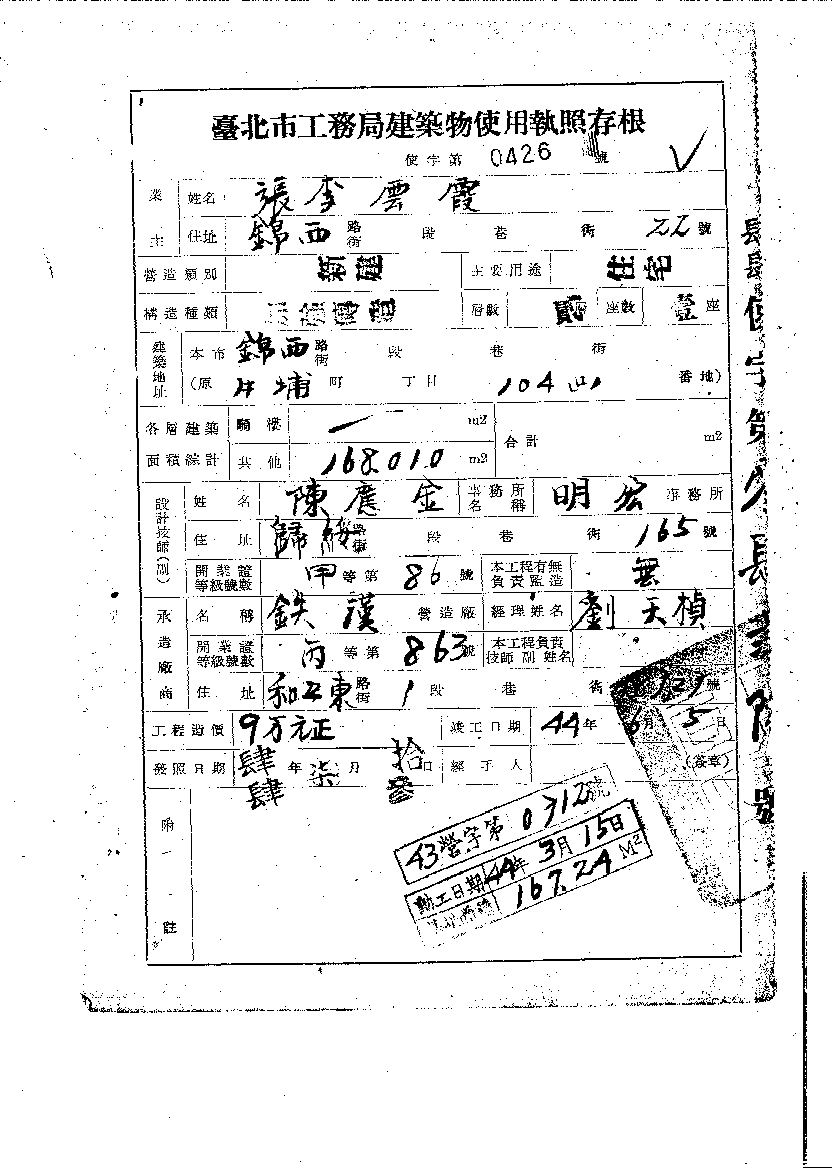 臺北市工務局建築物使用執照存根
使字第 0426 號
業主 姓名 張李雲霞
住址 錦西 路街 段 巷 街 22 號
營造類別 新建 主要用途 住宅
構造種類 層數 貳 座數 壹 座
建築地址 本市 錦西 路街 段 巷 街
(原 埔 町 丁目 104 番地)
各層建築面積綜計 騎樓 一 m2 合計 m2
其他 168.010 m2
設計技師(副) 姓名 陳應金 事務所名稱 明宏 事務所
住址 歸綏 路街 段 巷 街 165 號
開業證等級號數 甲 等第 86 號 本工程有無負責監造 無
承造廠商 名稱 鉄漢 營造廠 經理姓名 劉天楨
開業證等級號數 丙 等第 863 號 本工程負責技師副姓名
住址 東 路街 1 段 巷 街 號
工程造價 9万元正 竣工日期 44 年 6 月 5 日
發照日期 肆肆 年 柒 月 拾叁 日 經手人 (簽章)
附註
43營字第 0312 號
動工日期 44年3月15日
167.24 M2